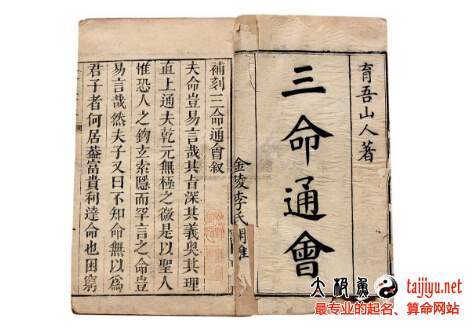 育吾山人著
三命通會
金陵李氏
補刻三命通會叙
夫命豈易言哉其旨深其義奥其理
直上通夫乾元無極之微是以聖人
惟恐人之鉤玄索隱而罕言之命豈
易言哉然夫子又曰不知命無以為
君子者何居葢富貴利達命也困窮
taijiyu.net
最专业的起名、算命网站